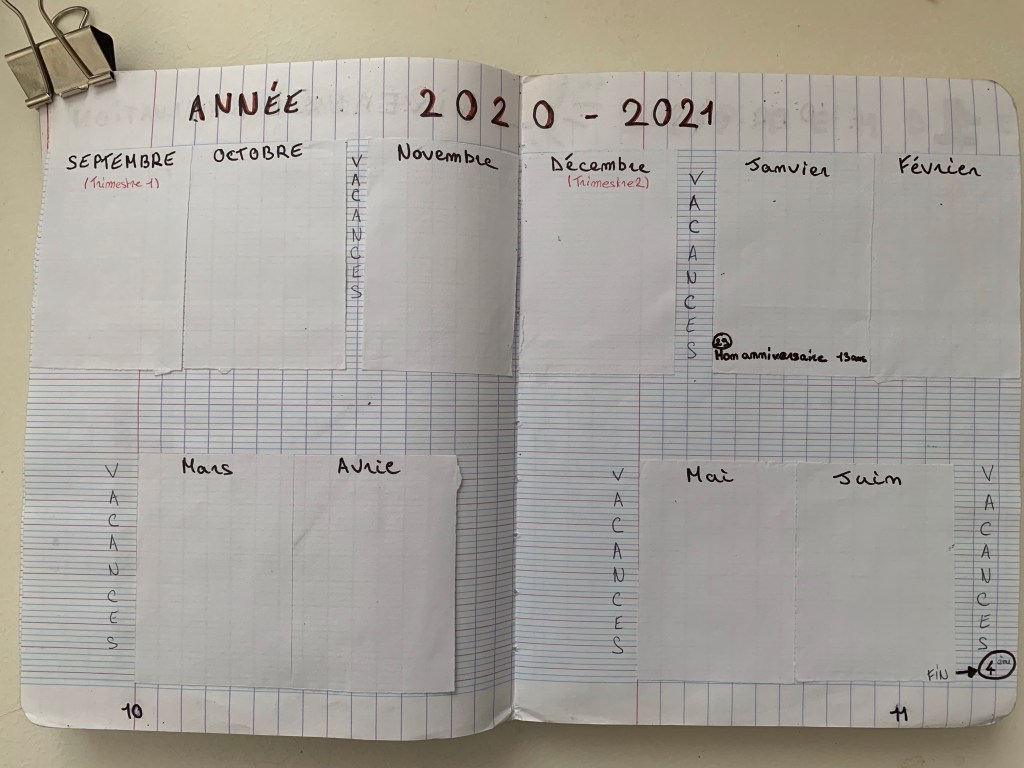 ANNÉE 2020 - 2021
SEPTEMBRE
(Trimestre 1)
OCTOBRE
VACANCES
Novembre
Décembre
(Trimestre 2)
VACANCES
Janvier
29
Mon anniversaire 13 ans
Février
VACANCES
Mars
Avril
VACANCES
Mai
Juin
VACANCES
FIN → 4ème
10
11